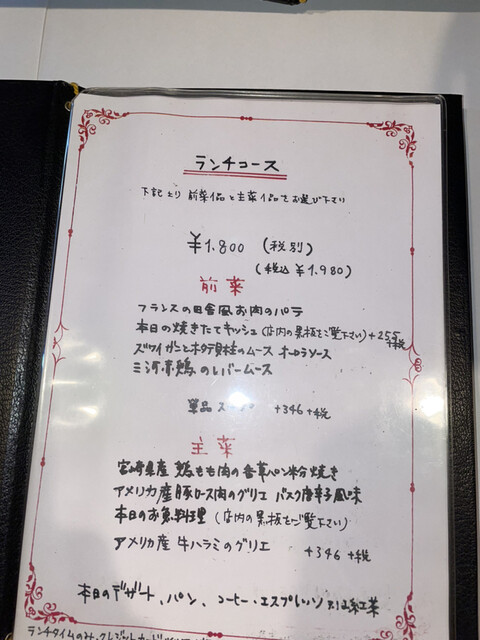 ランチコース
下記より 前菜1品と主菜1品をお選び下さい
¥1.800 (税別)
(税込 ¥1.980)
前菜
フランスの田舎風お肉のパテ
本日の焼きたてキッシュ (店内の黒板をご覧下さい) +255+税
ズワイガニとホタテ貝柱のムース オーロラソース
三河赤鶏のレバームース
単品 +346 +税
主菜
宮崎県産 鶏もも肉の香草パン粉焼き
アメリカ産豚ロース肉のグリエ バスク唐辛子風味
本日のお魚料理 (店内の黒板をご覧下さい)
アメリカ産 牛ハラミのグリエ +346 +税
本日のデザート、パン、コーヒー・エスプレッソ又は紅茶
ランチタイムのみ、クレジットカード